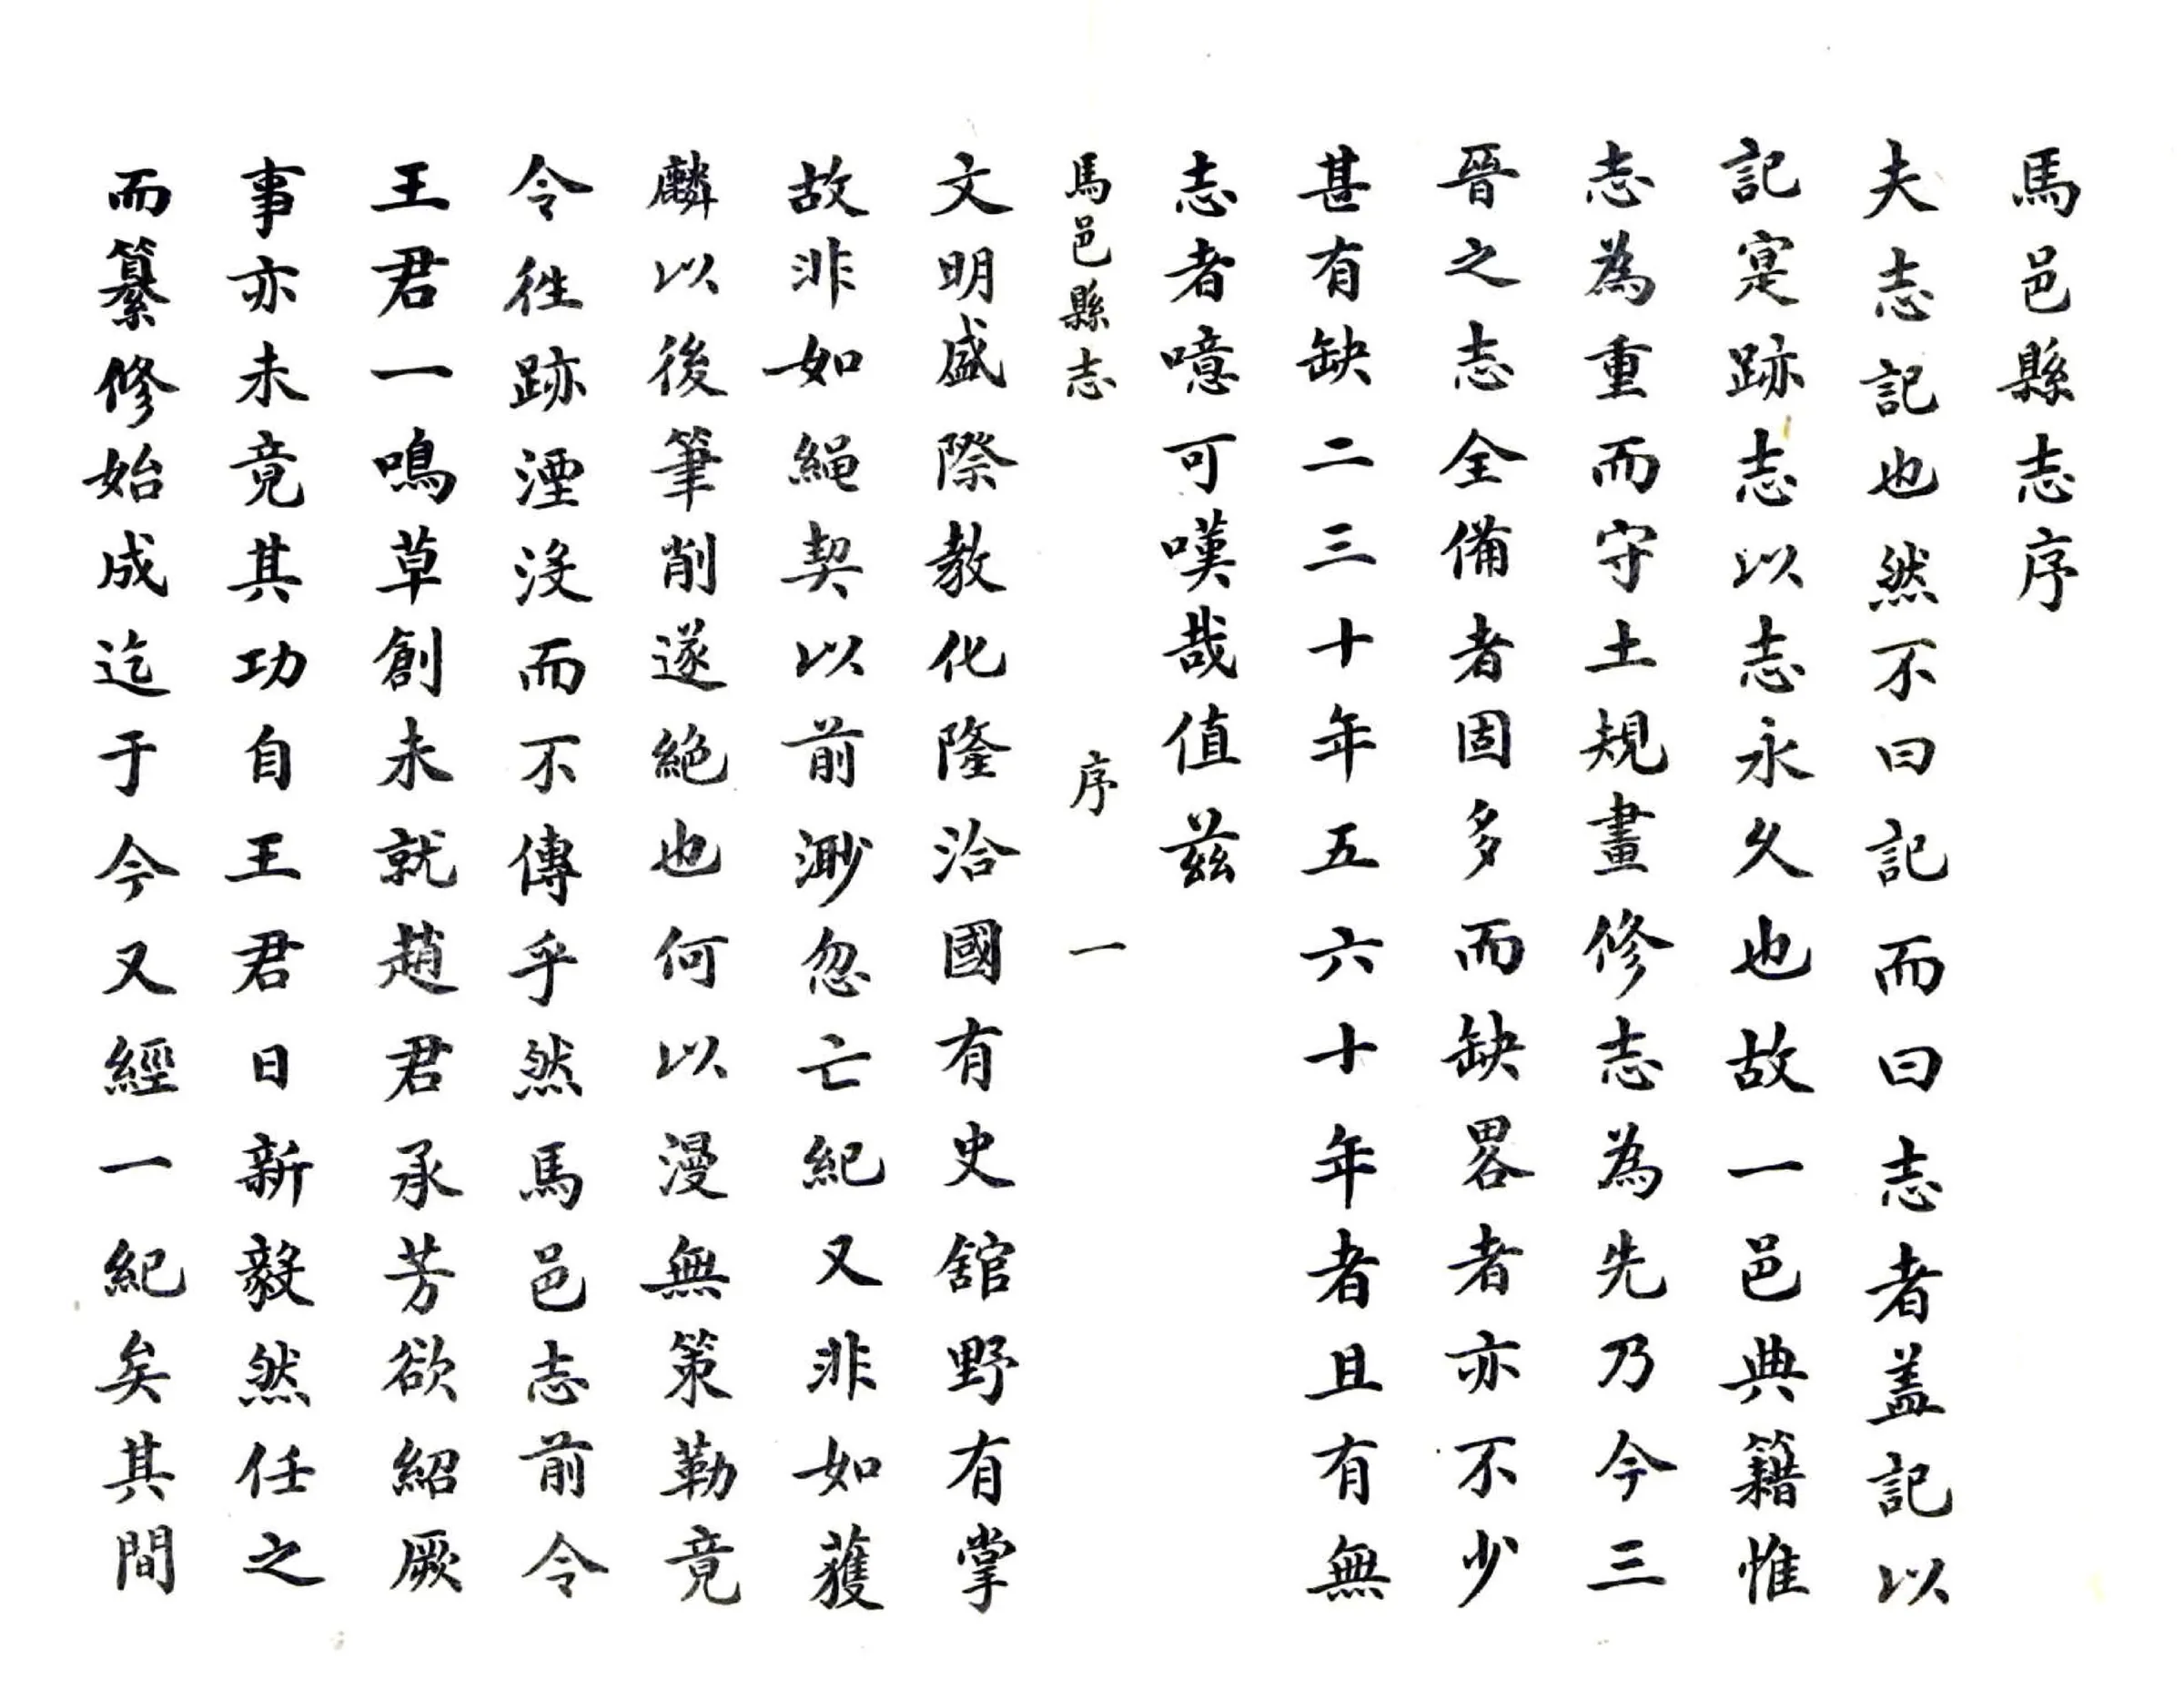 馬邑縣志序
夫志記也然不曰記而曰志者盖記以
記寔跡志以志永久也故一邑典籍惟
志為重而守土規畫修志為先乃今三
晉之志全備者固多而缺畧者亦不少
甚有缺二三十年五六十年者且有無
志者噫可嘆哉值茲
馬邑縣志 序 一
文明盛際教化隆洽國有史舘野有掌
故非如繩契以前渺忽亡紀又非如獲
麟以後筆削遂絶也何以漫無策勒竟
令徃跡湮没而不傳乎然馬邑志前令
王君一鳴草創未就趙君承芳欲紹厥
事亦未竟其功自王君日新毅然任之
而纂修始成迄于今又經一紀矣其間